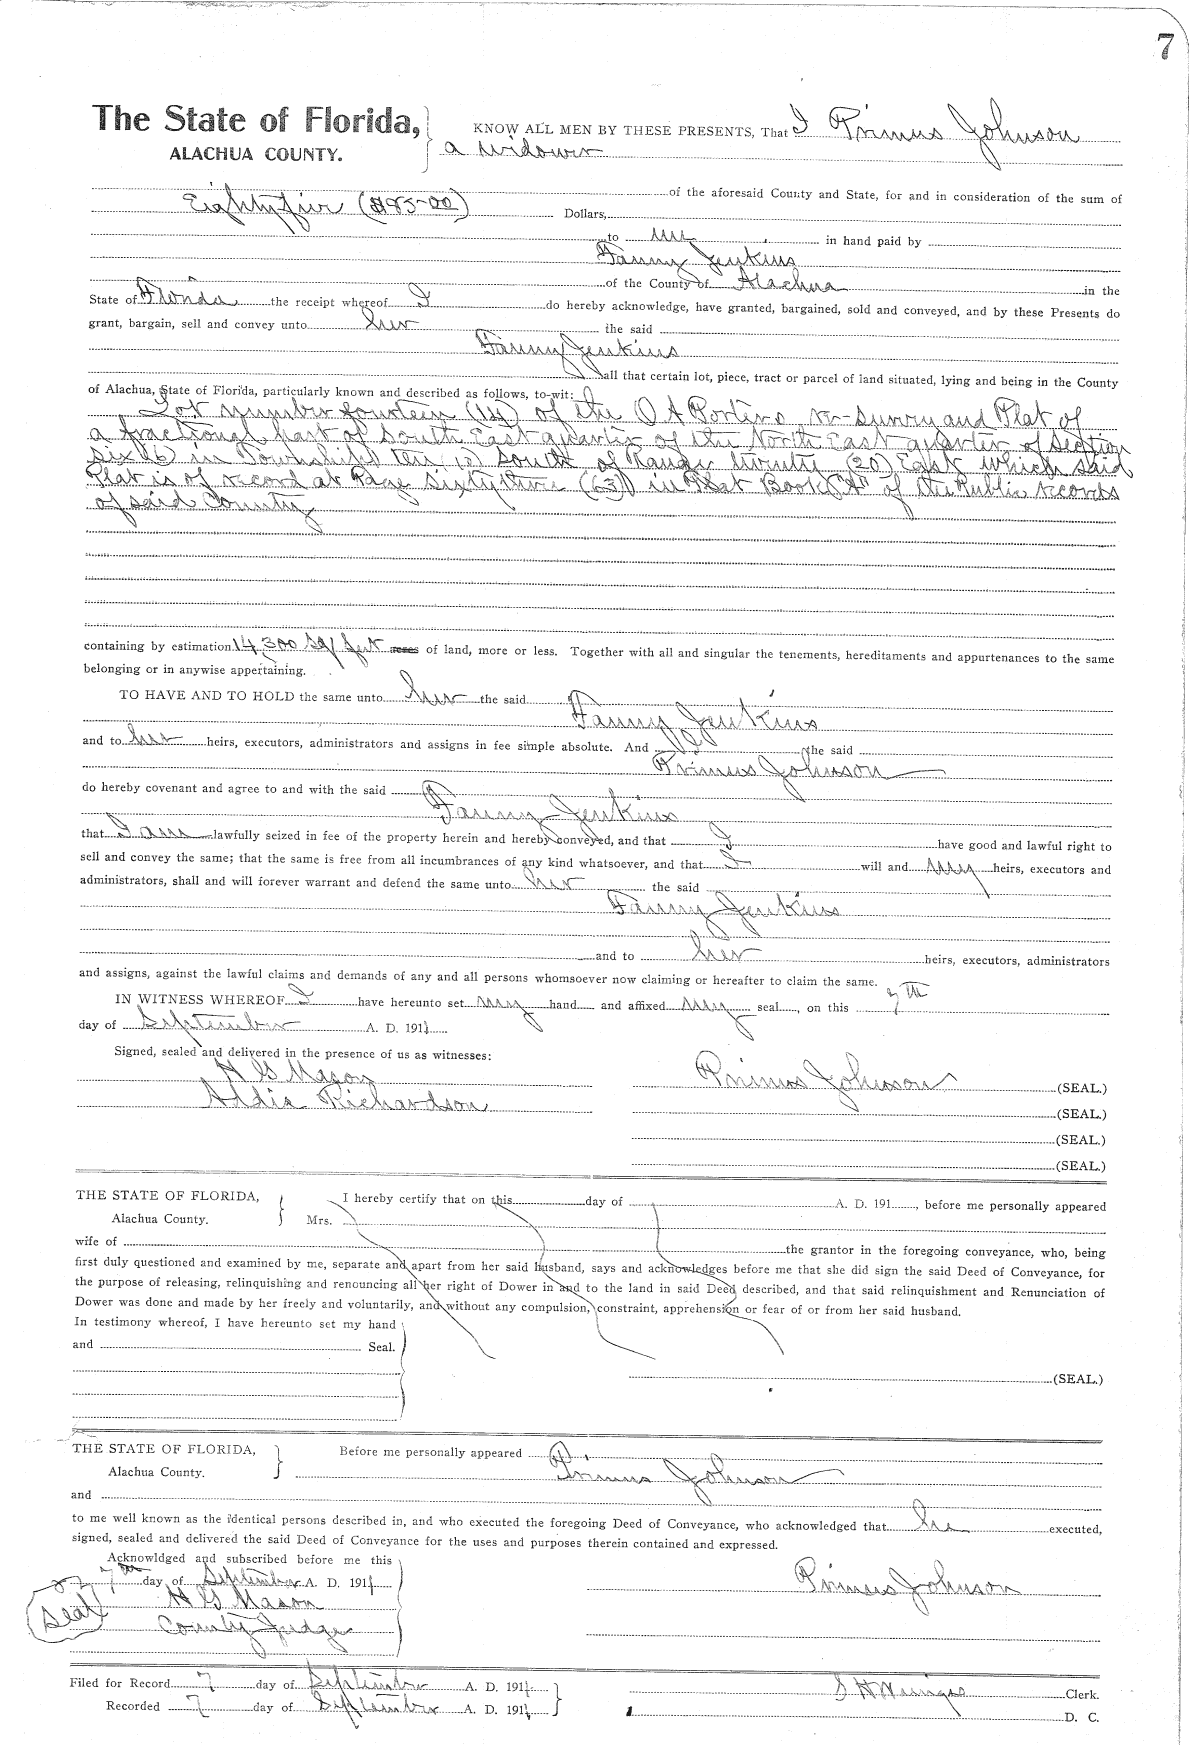 7
The State of Florida,
ALACHUA COUNTY.
KNOW ALL MEN BY THESE PRESENTS, That I Primus Johnson
a widower
of the aforesaid County and State, for and in consideration of the sum of
Eighty five ($85-00) Dollars,
to me in hand paid by
Fanny Jenkins
of the County of Alachua in the
State of Florida the receipt whereof I do hereby acknowledge, have granted, bargained, sold and conveyed, and by these Presents do
grant, bargain, sell and convey unto her the said
Fanny Jenkins
all that certain lot, piece, tract or parcel of land situated, lying and being in the County
of Alachua, State of Florida, particularly known and described as follows, to-wit:
Lot number fourteen (14) of the O A Porters re-survey and Plat of
a fractional part of South East quarter of the North East quarter of Section
six (6) in Township ten (10) South of Range twenty (20) East which said
Plat is of record at Page Sixty three (63) in Plat Book "A" of the Public records
of said County
containing by estimation 14,300 sq feet acres of land, more or less. Together with all and singular the tenements, hereditaments and appurtenances to the same
belonging or in anywise appertaining.
TO HAVE AND TO HOLD the same unto her the said
Fanny Jenkins
and to her heirs, executors, administrators and assigns in fee simple absolute. And I the said
Primus Johnson
do hereby covenant and agree to and with the said
Fanny Jenkins
that I am lawfully seized in fee of the property herein and hereby conveyed, and that I have good and lawful right to
sell and convey the same; that the same is free from all incumbrances of any kind whatsoever, and that I will and my heirs, executors and
administrators, shall and will forever warrant and defend the same unto her the said
Fanny Jenkins
and to her heirs, executors, administrators
and assigns, against the lawful claims and demands of any and all persons whomsoever now claiming or hereafter to claim the same.
IN WITNESS WHEREOF I have hereunto set my hand and affixed my seal, on this 7th
day of September A. D. 1911
Signed, sealed and delivered in the presence of us as witnesses:
H G Mason
Addie Richardson
Primus Johnson (SEAL.)
(SEAL.)
(SEAL.)
(SEAL.)
THE STATE OF FLORIDA,
Alachua County.
I hereby certify that on this day of A. D. 191, before me personally appeared
Mrs.
wife of the grantor in the foregoing conveyance, who, being
first duly questioned and examined by me, separate and apart from her said husband, says and acknowledges before me that she did sign the said Deed of Conveyance, for
the purpose of releasing, relinquishing and renouncing all her right of Dower in and to the land in said Deed described, and that said relinquishment and Renunciation of
Dower was done and made by her freely and voluntarily, and without any compulsion, constraint, apprehension or fear of or from her said husband.
In testimony whereof, I have hereunto set my hand
and Seal.
(SEAL.)
THE STATE OF FLORIDA,
Alachua County.
Before me personally appeared
Primus Johnson
and
to me well known as the identical persons described in, and who executed the foregoing Deed of Conveyance, who acknowledged that he executed,
signed, sealed and delivered the said Deed of Conveyance for the uses and purposes therein contained and expressed.
Acknowldged and subscribed before me this
7th day of September A. D. 1911
H G Mason
County Judge
Seal
Primus Johnson
Filed for Record 7 day of September A. D. 1911
Recorded 7 day of September A. D. 1911
S H Wienges Clerk.
D. C.